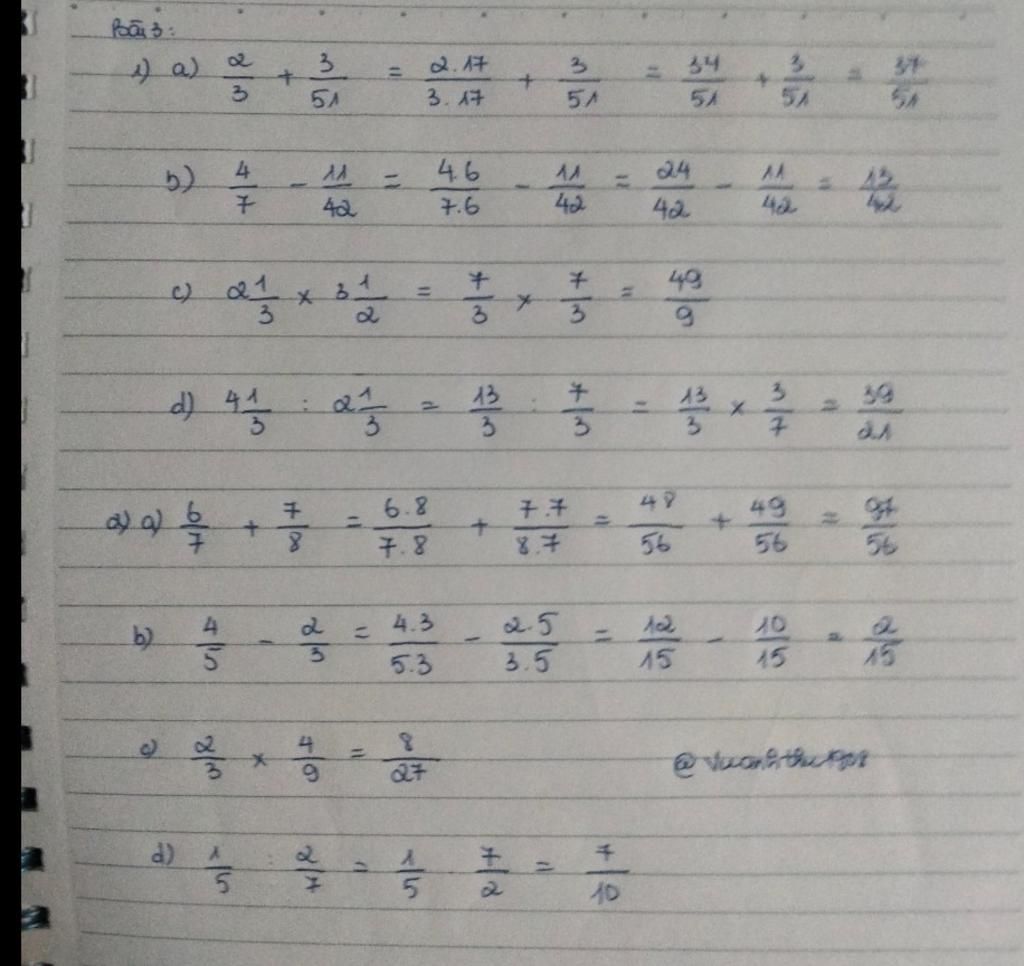 Bài 3:
1) a) 2/3 + 3/51 = 2.17/3.17 + 3/51 = 34/51 + 3/51 = 37/51
b) 4/7 - 11/42 = 4.6/7.6 - 11/42 = 24/42 - 11/42 = 13/42
c) 2 1/3 x 3 1/2 = 7/3 x 7/3 = 49/9
d) 4 1/3 : 2 1/3 = 13/3 : 7/3 = 13/3 x 3/7 = 39/21
2) a) 6/7 + 7/8 = 6.8/7.8 + 7.7/8.7 = 48/56 + 49/56 = 97/56
b) 4/5 - 2/3 = 4.3/5.3 - 2.5/3.5 = 12/15 - 10/15 = 2/15
c) 2/3 x 4/9 = 8/27
d) 1/5 : 2/7 = 1/5 7/2 = 7/10